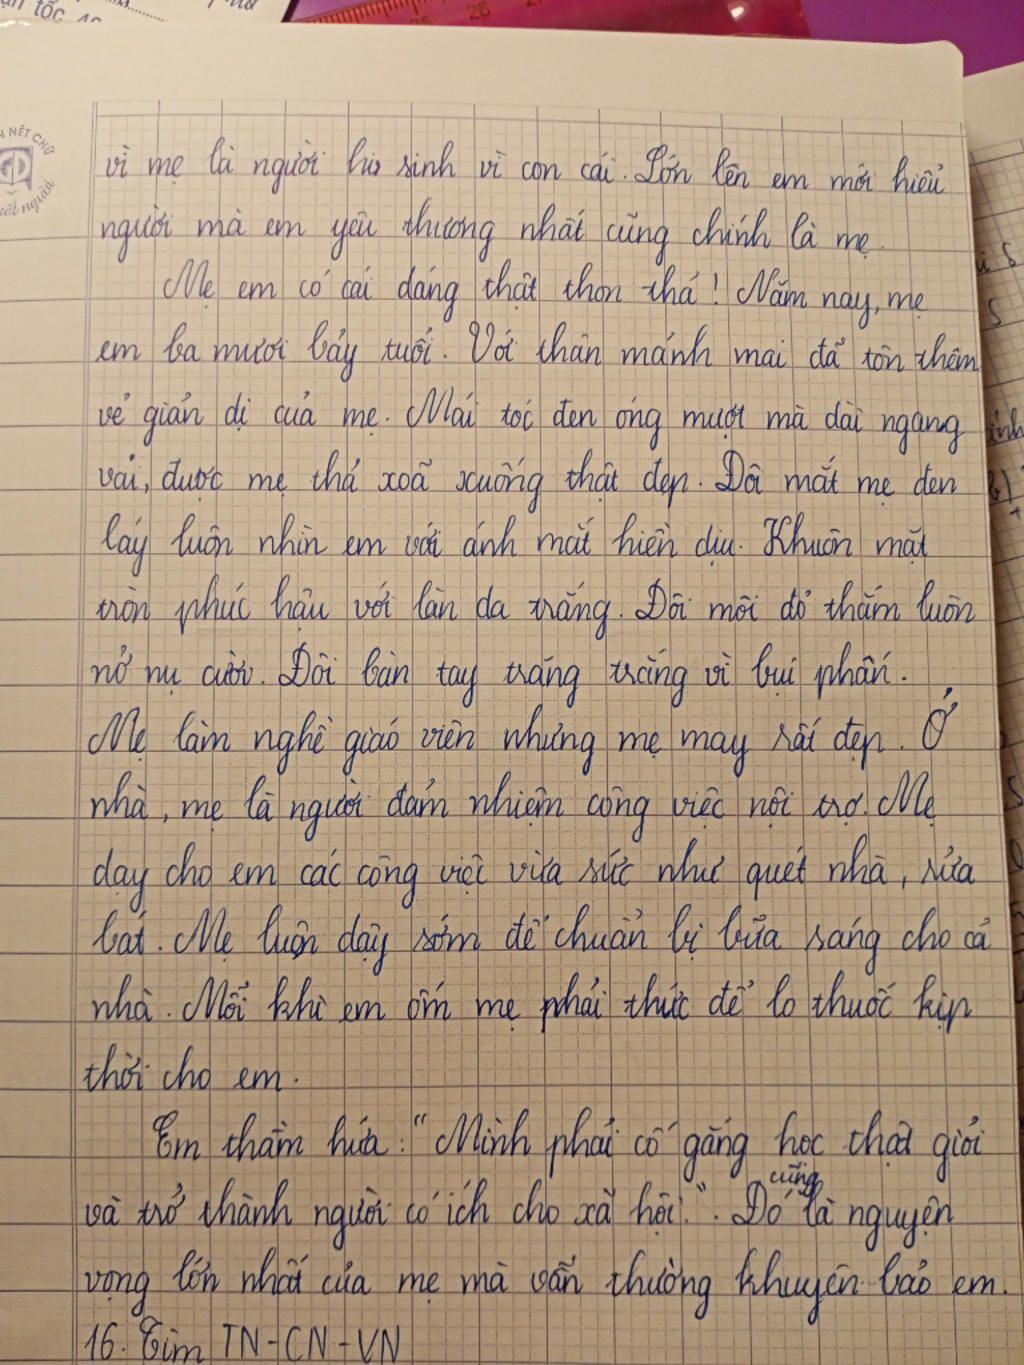 tộc
25 26 27
NÉT CHỮ
nết người
vì mẹ là người hi sinh vì con cái. Lớn lên em mới hiểu
người mà em yêu thương nhất cũng chính là mẹ.
Mẹ em có cái dáng thật thon thả! Năm nay, mẹ
em ba mươi bảy tuổi. Với thân mảnh mai đã tôn thêm
vẻ giản dị của mẹ. Mái tóc đen óng mượt mà dài ngang
vai, được mẹ thả xoã xuống thật đẹp. Đôi mắt mẹ đen
láy luôn nhìn em với ánh mắt hiền dịu. Khuôn mặt
tròn phúc hậu với làn da trắng. Đôi môi đỏ thắm luôn
nở nụ cười. Đôi bàn tay trăng trắng vì bụi phấn.
Mẹ làm nghề giáo viên nhưng mẹ may rất đẹp. Ở
nhà, mẹ là người đảm nhiệm công việc nội trợ. Mẹ
dạy cho em các công việc vừa sức như quét nhà, rửa
bát. Mẹ luôn dậy sớm để chuẩn bị bữa sáng cho cả
nhà. Mỗi khi em ốm mẹ phải thức để lo thuốc kịp
thời cho em.
Em thầm hứa: "Mình phải cố gắng học thật giỏi
và trở thành người có ích cho xã hội.". Đó cũng là nguyện
vọng lớn nhất của mẹ mà vẫn thường khuyên bảo em.
16. Tìm TN-CN-VN